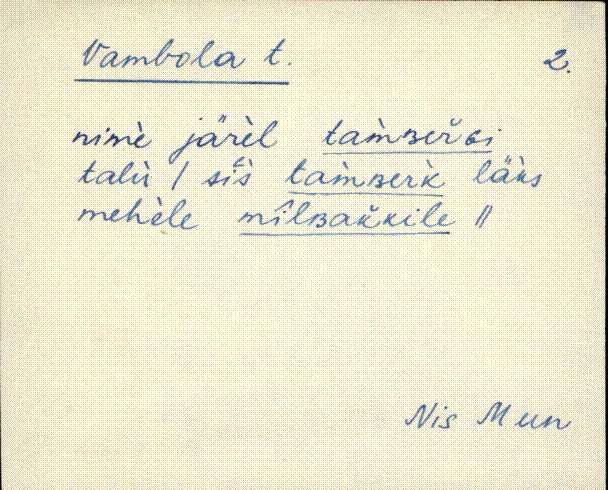 Vambola t.
2.
nimè järèl tam̀ʙer̆ɢi
talù / sīs tam̀ʙerk̀ läks
mehèle mîlʙak̆kile //
Nis Mun